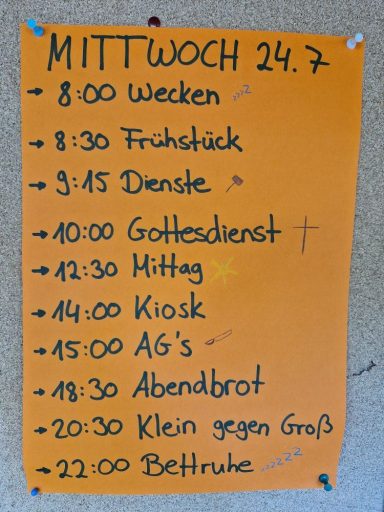 MITTWOCH 24.7
→ 8:00 Wecken zzzZ
→ 8:30 Frühstück
→ 9:15 Dienste
→ 10:00 Gottesdienst
→ 12:30 Mittag
→ 14:00 Kiosk
→ 15:00 AG's
→ 18:30 Abendbrot
→ 20:30 Klein gegen Groß
→ 22:00 Bettruhe zzzzZZ